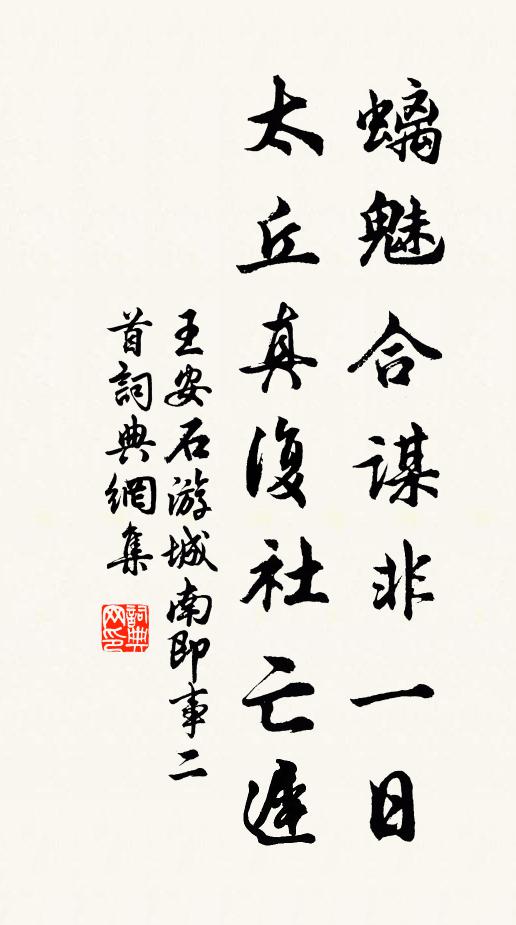 螭魅合謀非一日
太丘真復社亡遲
王安石游城南即事二
首詞典網集
詞典
网印